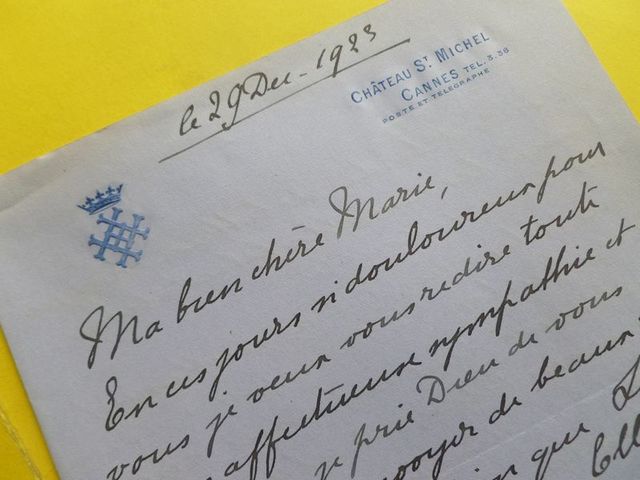 le 29 Dec - 1923
CHÂTEAU ST MICHEL
CANNES TEL. 3.36
POSTE ET TELEGRAPHE
Ma bien chère Marie,
En ces jours si douloureux pour
vous je veux vous redire toute
affectueuse sympathie et
je prie Dieu de vous
envoyer de beaux
que